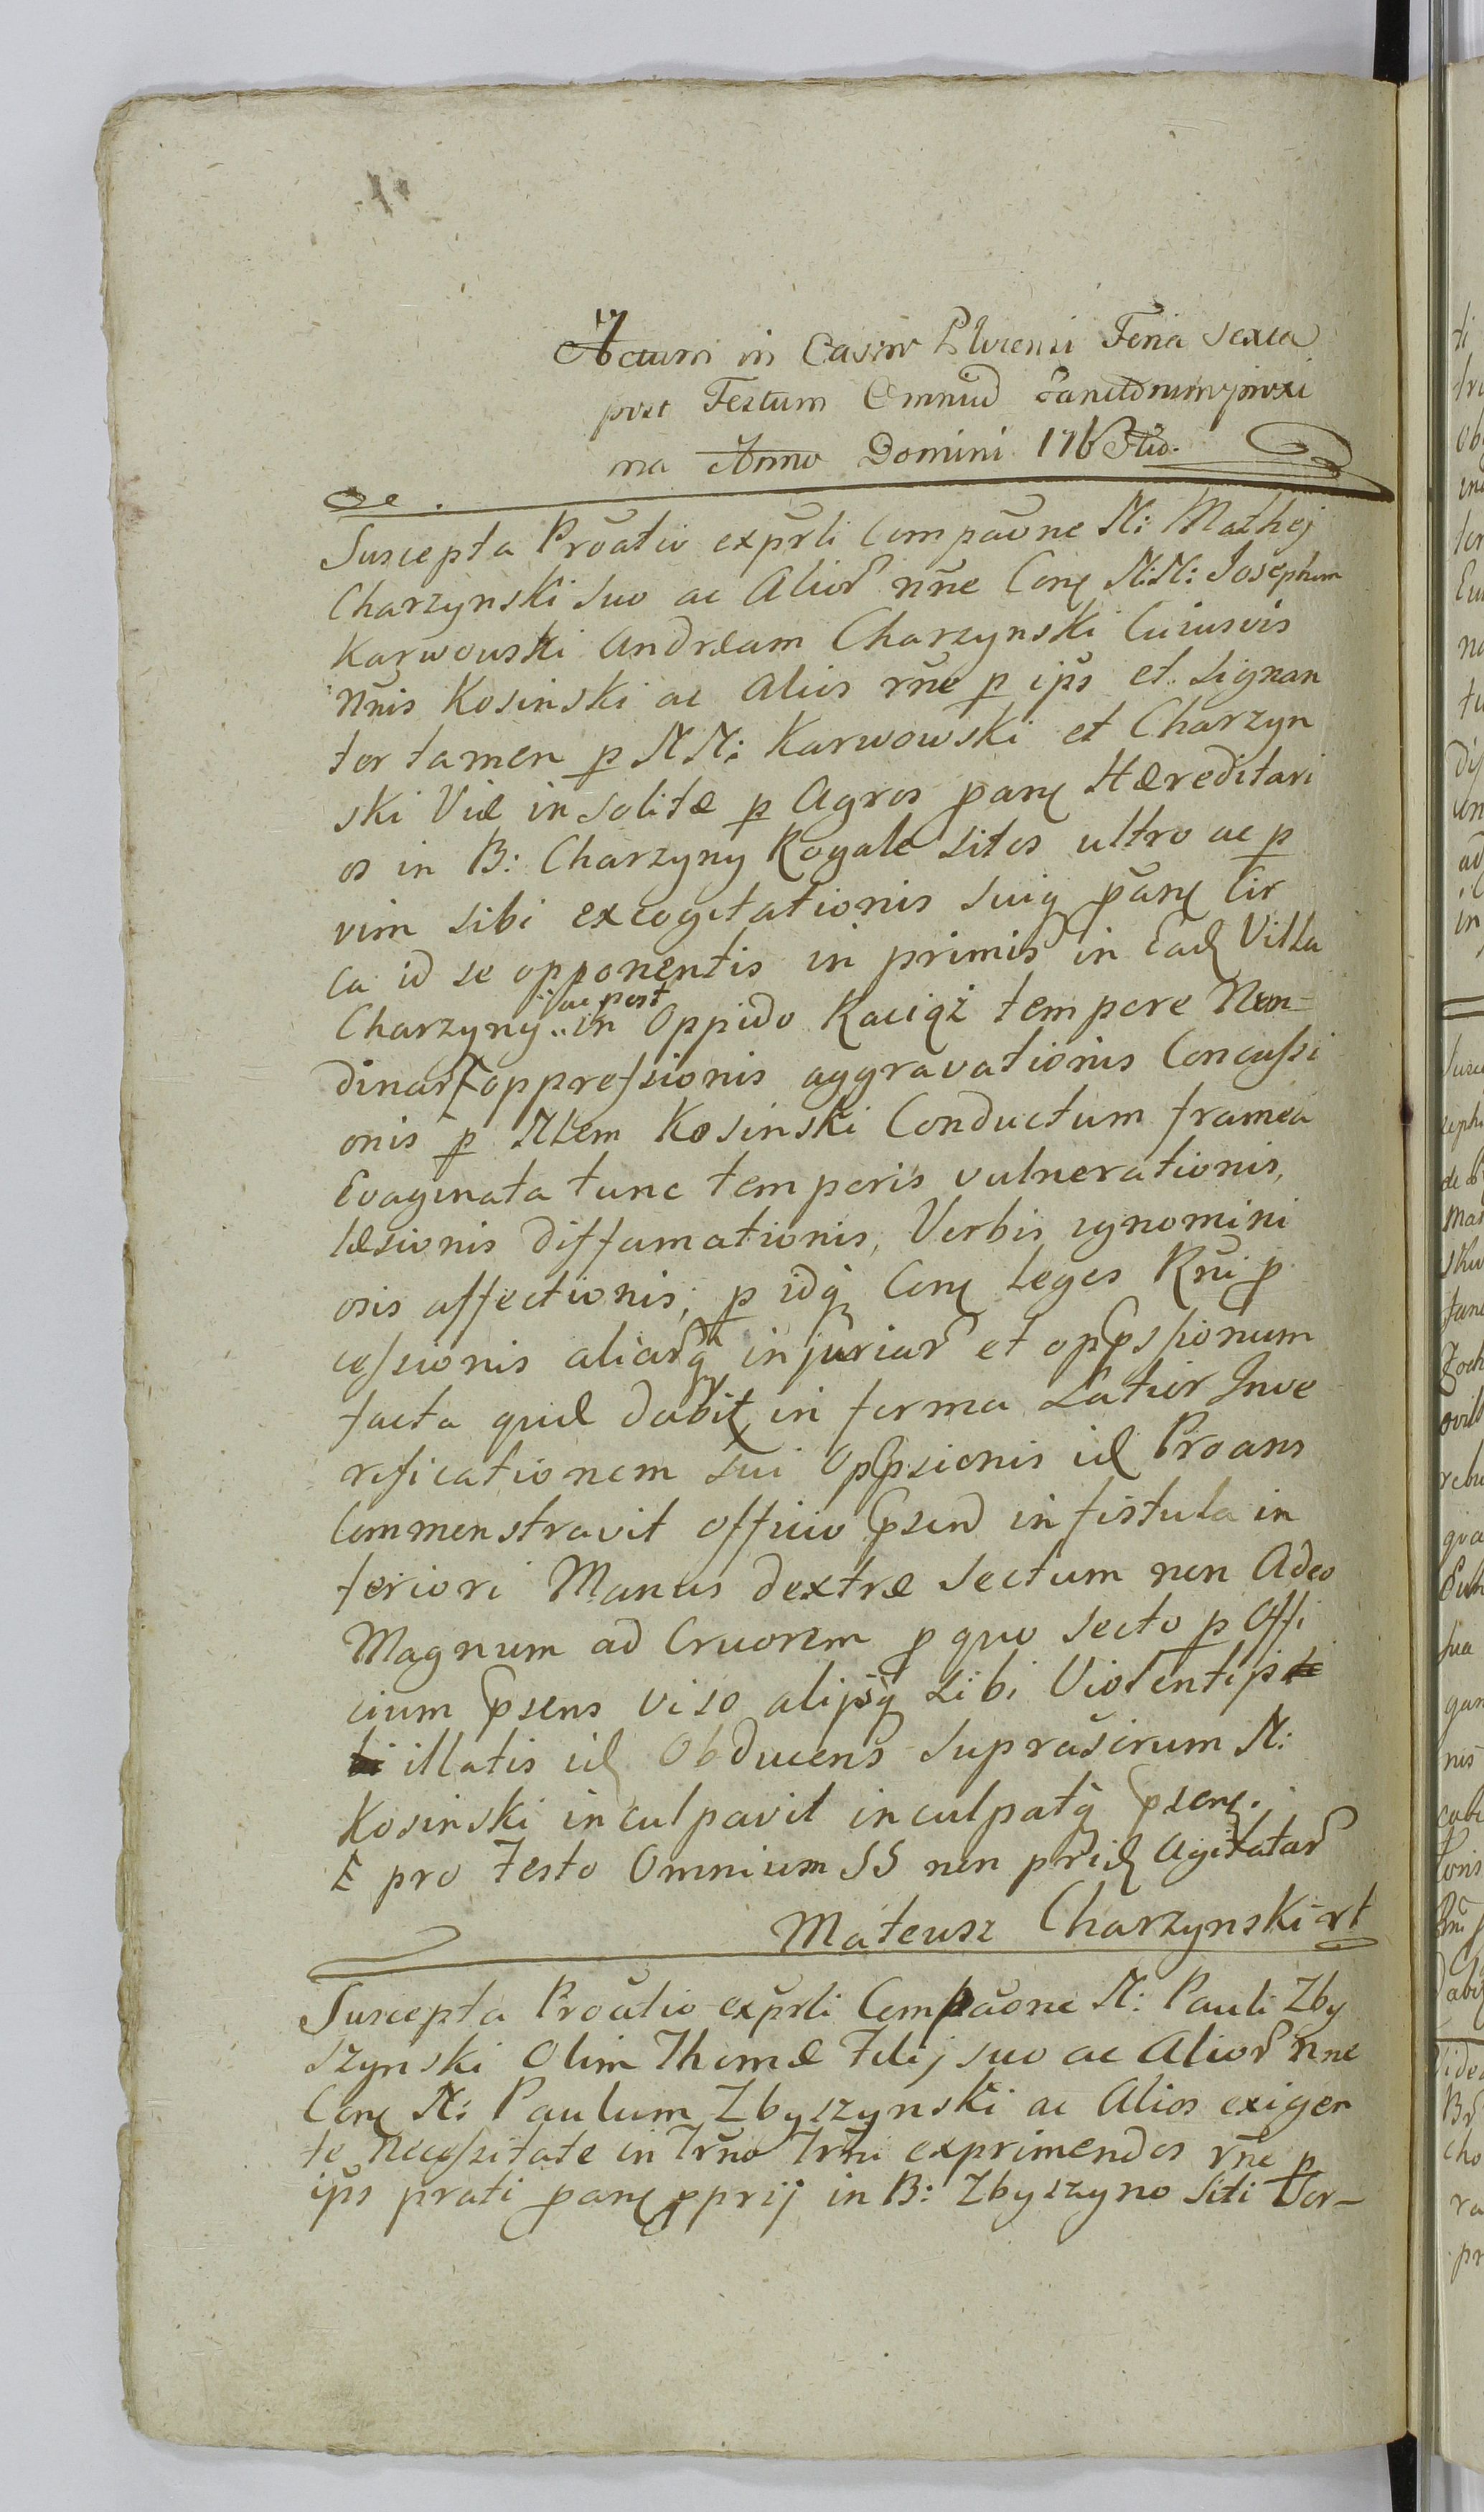 Actum in Castro Plocensi Feria sexta
post Festum Omniũ Sanctorum proxi
ma Anno Domini
Suscepta Prõatio exprli Compaõne N: Mathej
Charzynski suo ac Alior nñe Conţ N:N: Josephum
Karwowski Andræam Charzynski Cuiusvis
nñis Kosinski ac Alios rñe p ips et signan
ter tamen p NN: Karwowski et Charzyn
ski Viæ insolitæ p Agros panţ Hæreditari
os in B: Charzyny Rogale sitos ultro ac p
vim sibi excogitationis suiq panţ Cir
ca id se opponentis in primis in Eadţ Villa
Charzyny ac post in Oppido Raciąż tempore Nun=
dinar oppressionis aggravationis Concussi
onis p Nlem Kosinski Conductum framea
Evaginata tunc temporis vulnerationis,
læsionis diffamationis, Verbis ignomini
osis affectionis; p idq Conţ Leges Rñi p
cessionis aliarq injuriar et oppssionum
facta quæ dabit in forma Latior Inve
rificationem sui Oppsionis idţ Proans
Commonstravit officio psend in fistula in
feriori Manus dextræ Sectum non Adeo
Magnum ad Cruorem p quo secto p Offi
cium psens viso alijsq sibi Violentijs
illatis idţ Obducens suprascrum N:
Kosinski inculpavit inculpatq psenţ.
E pro Festo Omnium SS non pridţ Agitatar
Mateusz Charzynski
Suscepta Proatio exprli Compaone N: Pauli Zby
szynski Olim Thomæ Filij suo ac Alior nne
Conţ N: Paulum Zbyszynski ac Alios exigen
te necessitate in Trño Trñi exprimendos rñe p
ips prati panţ pprij in B: Zbyszyno siti Vor-